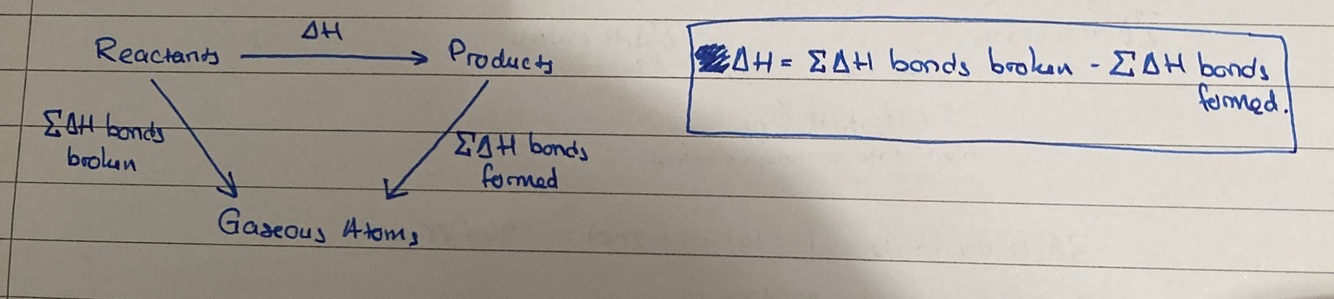 ΔH
Reactants → Products
ΣΔH bonds
broken
ΣΔH bonds
formed
Gaseous Atoms
ΔH = ΣΔH bonds broken - ΣΔH bonds
formed.